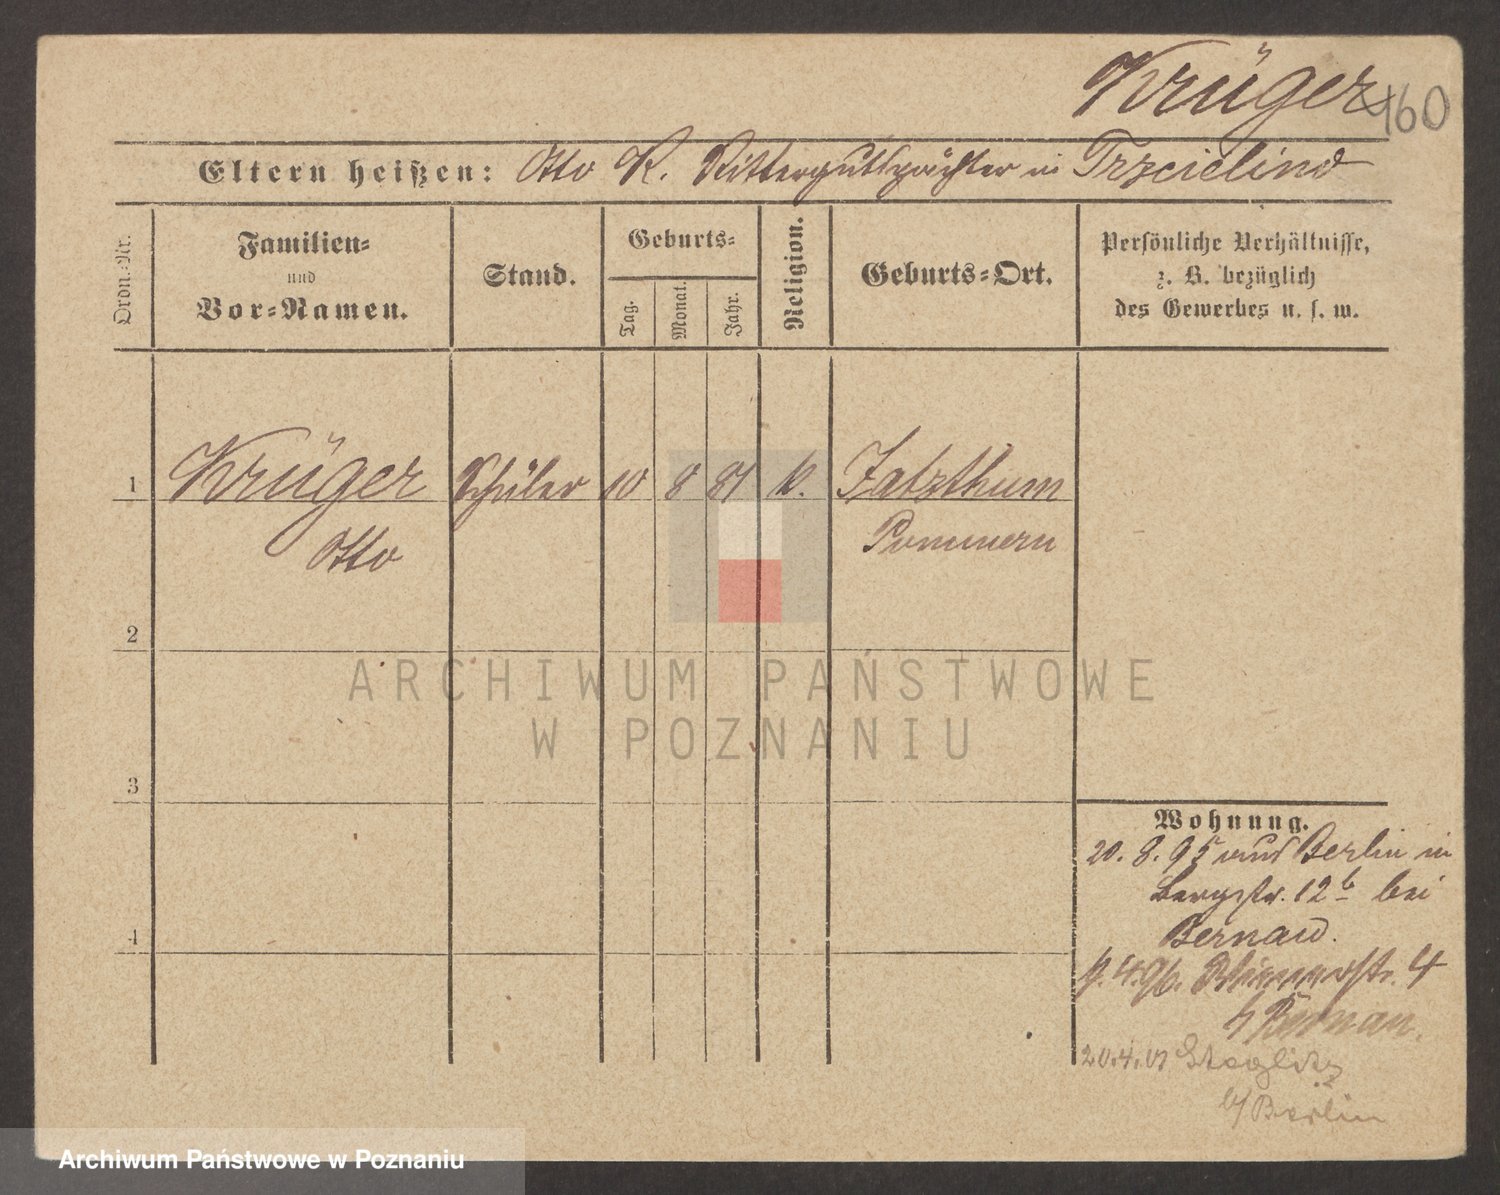 Krüger
160
Eltern heißen: Otto K. Rittergutspächter in Trzcielino
Ordn.-Nr.
Familien-
und
Vor-Namen.
Stand.
Geburts-
Tag.
Monat.
Jahr.
Religion.
Geburts-Ort.
Persönliche Verhältnisse,
z. B. bezüglich
des Gewerbes u. s. w.
1 Krüger Schüler 10 8 81 Jatzthum
Otto Pommern
2
3
4
Wohnung.
20. 8. 95 aus Berlin in
Bergstr. 12b bei
Bernau.
4. 96. 4
b/ Bernau.
20.4.01 Steglitz
b/ Berlin
ARCHIWUM PAŃSTWOWE
W POZNANIU
Archiwum Państwowe w Poznaniu